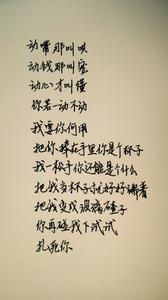 动嘴那叫呗
动钱那叫宠
动心才叫懂
你若一动不动
我要你何用
把你捧在手里你是个杯子
我一松手你还能是个什么
把我当杯子就好好端着
把我变成玻璃碴子
你再碰我下试试
扎死你